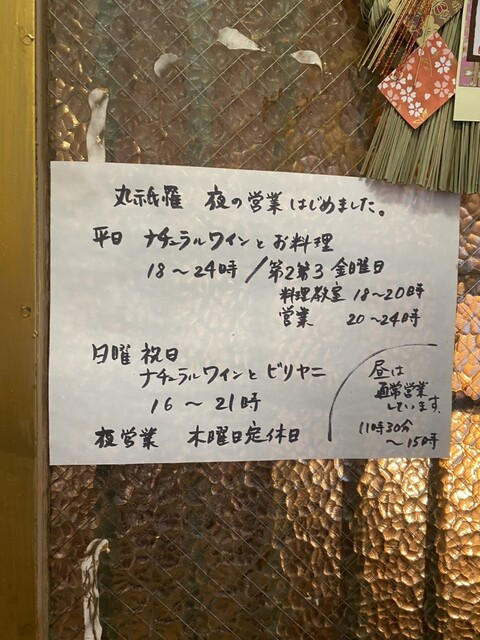 丸祇羅 夜の営業はじめました。
平日 ナチュラルワインとお料理
18〜24時/第2第3金曜日
料理教室 18〜20時
営業 20〜24時
日曜 祝日
ナチュラルワインと ビリヤニ
16〜21時
夜営業 木曜日定休日
昼は
通常営業
しています。
11時30分
〜15時